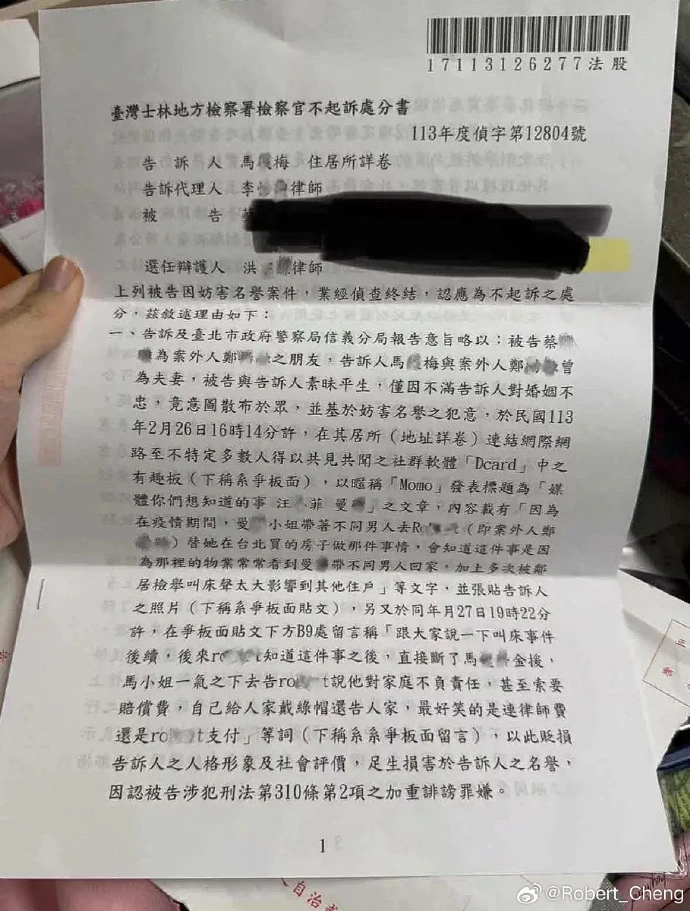 17113126277法股
臺灣士林地方檢察署檢察官不起訴處分書
113年度偵字第12804號
告訴人 馬 梅 住居所詳卷
告訴代理人 李 律師
被告
選任辯護人 洪 律師
上列被告因妨害名譽案件，業經偵查終結，認應為不起訴之處
分，茲敘述理由如下：
一、告訴及臺北市政府警察局信義分局報告意旨略以：被告蔡
為案外人鄭 之朋友，告訴人馬 梅與案外人鄭 曾
為夫妻，被告與告訴人素昧平生，僅因不滿告訴人對婚姻不
忠，竟意圖散布於眾，並基於妨害名譽之犯意，於民國113
年2月26日16時14分許，在其居所（地址詳卷）連結網際網
路至不特定多數人得以共見共聞之社群軟體「Dcard」中之
有趣板（下稱系爭板面），以暱稱「Momo」發表標題為「媒
體你們想知道的事 汪 菲 曼 」之文章，內容載有「因為
在疫情期間，曼 小姐帶著不同男人去Ro （即案外人鄭
）替她在台北買的房子做那件事情，會知道這件事是因
為那裡的物業常常看到曼 帶不同男人回家，加上多次被鄰
居檢舉叫床聲太大影響到其他住戶」等文字，並張貼告訴人
之照片（下稱系爭板面貼文），另又於同年月27日19時22分
許，在爭板面貼文下方B9處留言稱「跟大家說一下叫床事件
後續，後來ro t知道這件事之後，直接斷了馬 金援，
馬小姐一氣之下去告ro t說他對家庭不負責任，甚至索要
賠償費，自己給人家戴綠帽還告人家，最好笑的是連律師費
還是ro t支付」等詞（下稱系系爭板面留言），以此貶損
告訴人之人格形象及社會評價，足生損害於告訴人之名譽，
因認被告涉犯刑法第310條第2項之加重誹謗罪嫌。
1
@Robert_Cheng